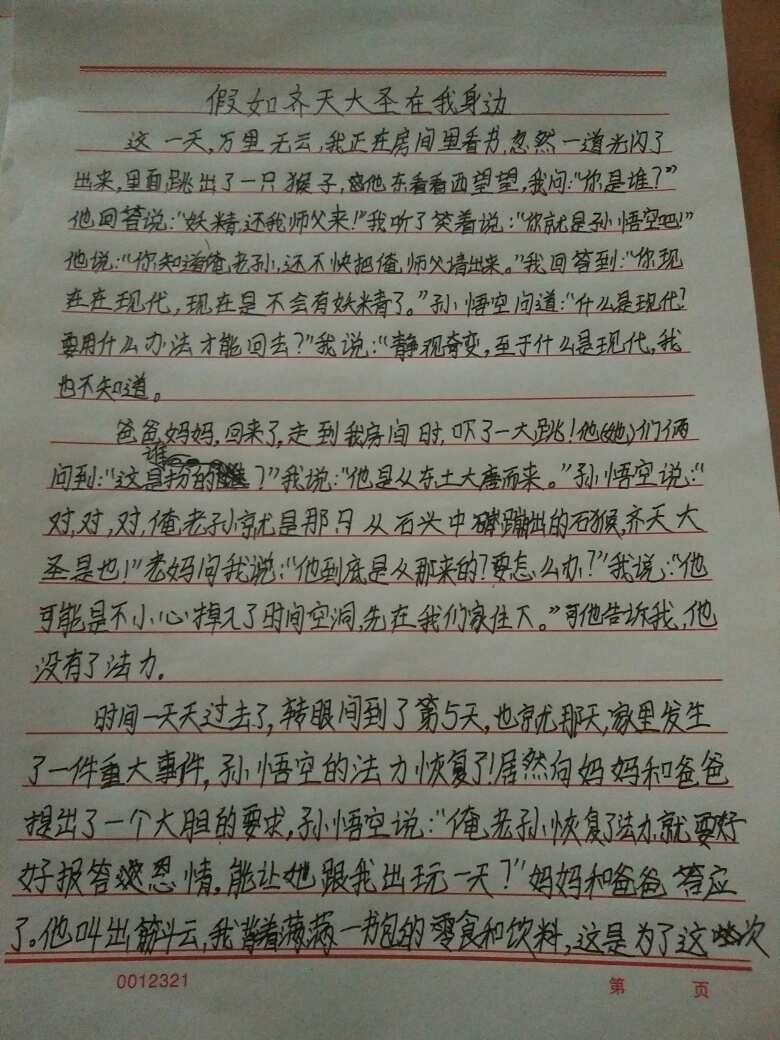 假如齐天大圣在我身边
这一天,万里无云,我正在房间里看书,忽然一道光闪了
出来,里面跳出了一只猴子,他东看看西望望,我问:“你是谁?”
他回答说:“妖精,还我师父来!”我听了笑着说:“你就是孙悟空吧!”
他说:“你知道俺老孙,还不快把俺师父请出来。”我回答到:“你现
在在现代,现在是不会有妖精了。”孙悟空问道:“什么是现代?
要用什么办法才能回去?”我说:“静观奇变,至于什么是现代,我
也不知道。
爸爸妈妈,回来了,走到我房间时,吓了一大跳!他(她)们俩
问到:“这是谁扮的?”我说:“他是从东土大唐而来。”孙悟空说:“
对,对,对,俺老孙就是那只从石头中蹦出的石猴,齐天大
圣是也!”老妈问我说:“他到底是从那来的?要怎么办?”我说:“他
可能是不小心掉入了时间空洞,先在我们家住下。”可他告诉我,他
没有了法力.
时间一天天过去了,转眼间到了第5天,也就那天,家里发生
了一件重大事件,孙悟空的法力恢复了!居然向妈妈和爸爸
提出了一个大胆的要求,孙悟空说:“俺老孙恢复了法力,就要好
好报答恩情,能让她跟我出玩一天?”妈妈和爸爸答应
了。他叫出筋斗云,我背着满满一书包的零食和饮料,这是为了这次
0012321
第 页